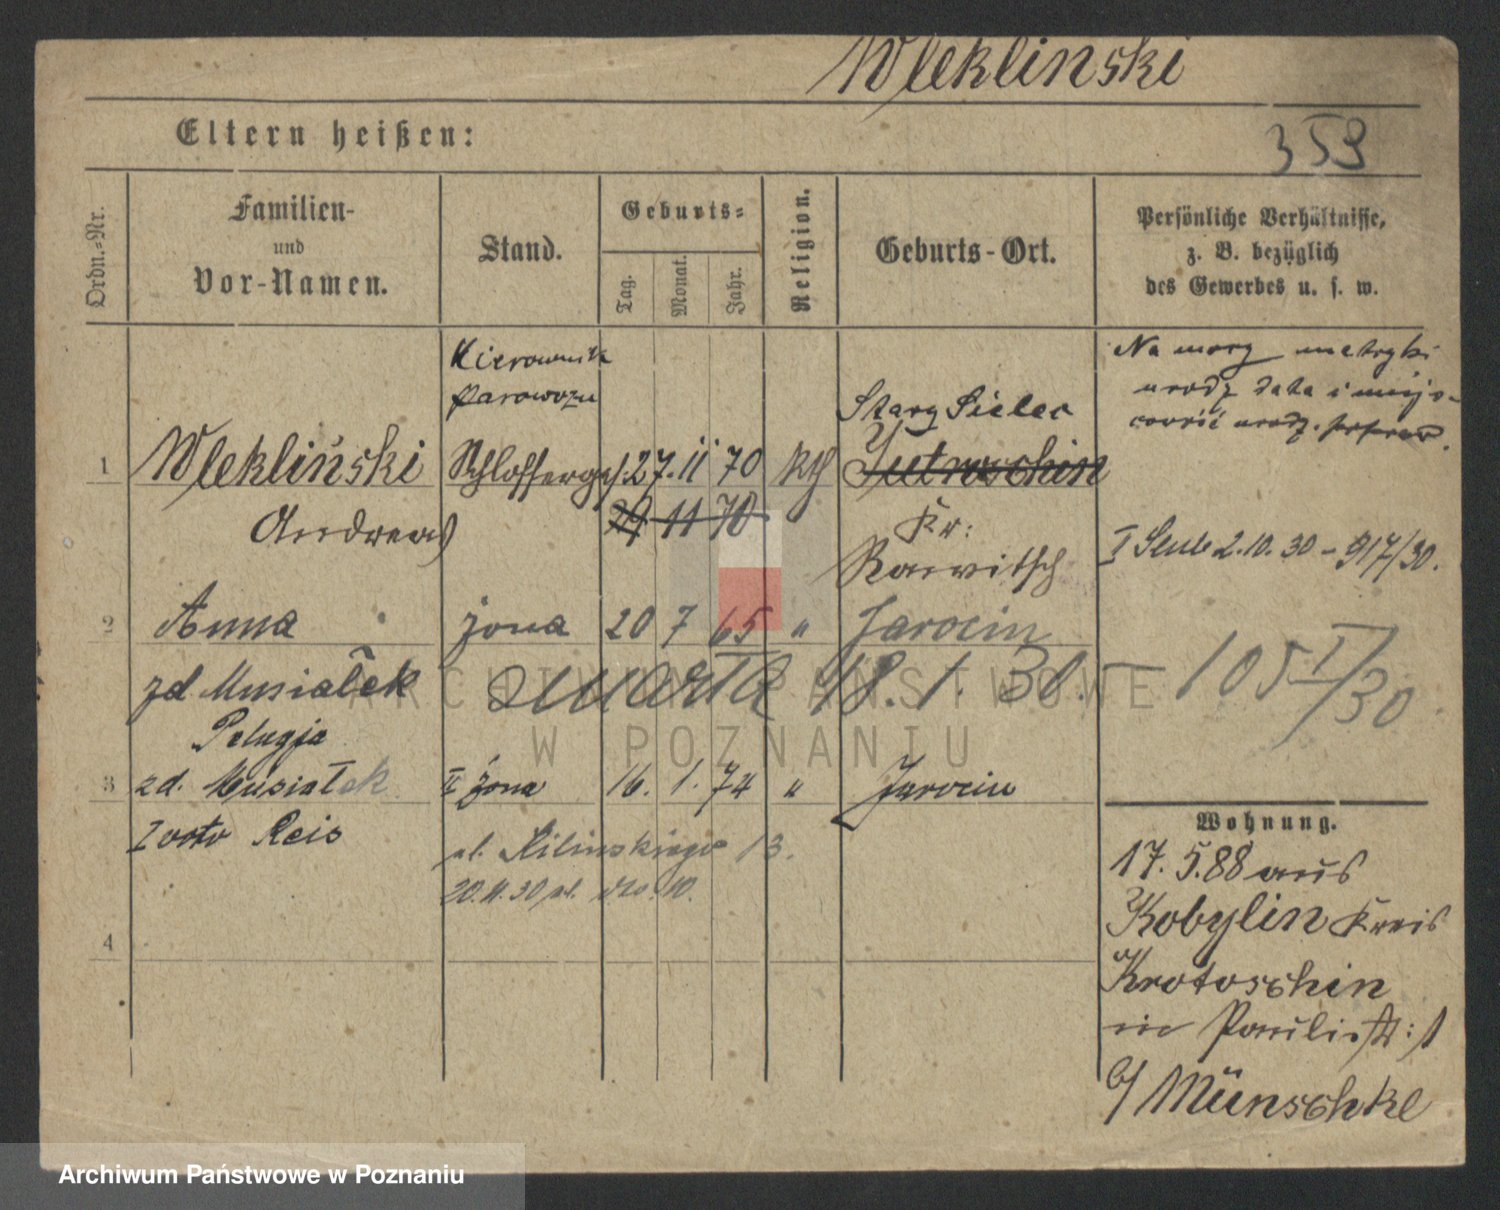 Wleklinski
Eltern heißen:
359
Ordn.-Nr.
Familien-
und
Vor-Namen.
Stand.
Geburts-
Tag.
Monat.
Jahr.
Religion.
Geburts-Ort.
Persönliche Verhältnisse,
z. B. bezüglich
des Gewerbes u. s. w.
Kierownik
parowozu
Stary Sielec
Na mocy metryki
urodz data i miejs-
cowość urodz.
1 Wlekliński Schlosserges. 27. 11 70 kth Jutroschin
Andreas 29 11 70 Kr:
Rawitsch
I Slub 2.10.30 - 917/30.
2 Anna żona 20 7 65 " Jarocin
zd Musiałek zmarła 18. 1. 30. - 105 I/30
Pelagja
3 zd. Musiałek II żona 16. 1. 74 " Jarocin
I voto Reis
ul. Kilinskiego 13.
20.11.30 ul. 10.
4
Wohnung.
17. 5. 88 aus
Kobylin Kreis
Krotoschin
in Paulistr: 1
b/ Münschke
ARCHIWUM PAŃSTWOWE
W POZNANIU
Archiwum Państwowe w Poznaniu